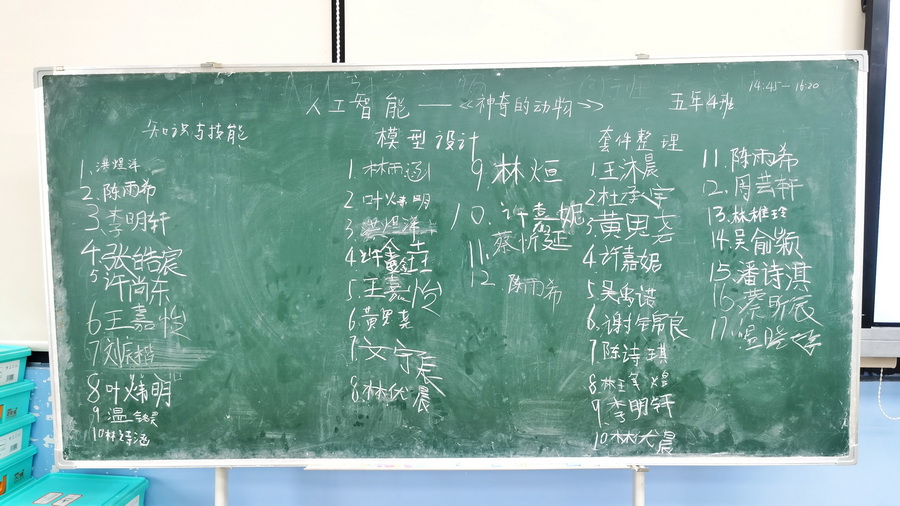 人工智能——《神奇的动物》 五年4班 14:45-16:20
知识与技能
1.洪煜洋
2.陈雨希
3.李明轩
4.张皓宸
5.许尚东
6.王嘉怡
7.刘宸楷
8.叶炜明
9.温
10.林诗涵
模型设计
1.林雨涵
2.叶炜明
3.洪煜洋
4.许
5.王嘉怡
6.黄思
7.文宁晨
8.林优晨
9.林烜
10.许嘉妮
11.蔡忻延
12.陈雨希
套件整理
1.王沐晨
2.杜承宇
3.黄思
4.许嘉妮
5.吴禹诺
6.谢锦良
7.陈诗琪
8.林
9.李明轩
10.林优晨
11.陈雨希
12.周芸轩
13.林雅玲
14.吴俞颖
15.潘诗淇
16.蔡昕辰
17.